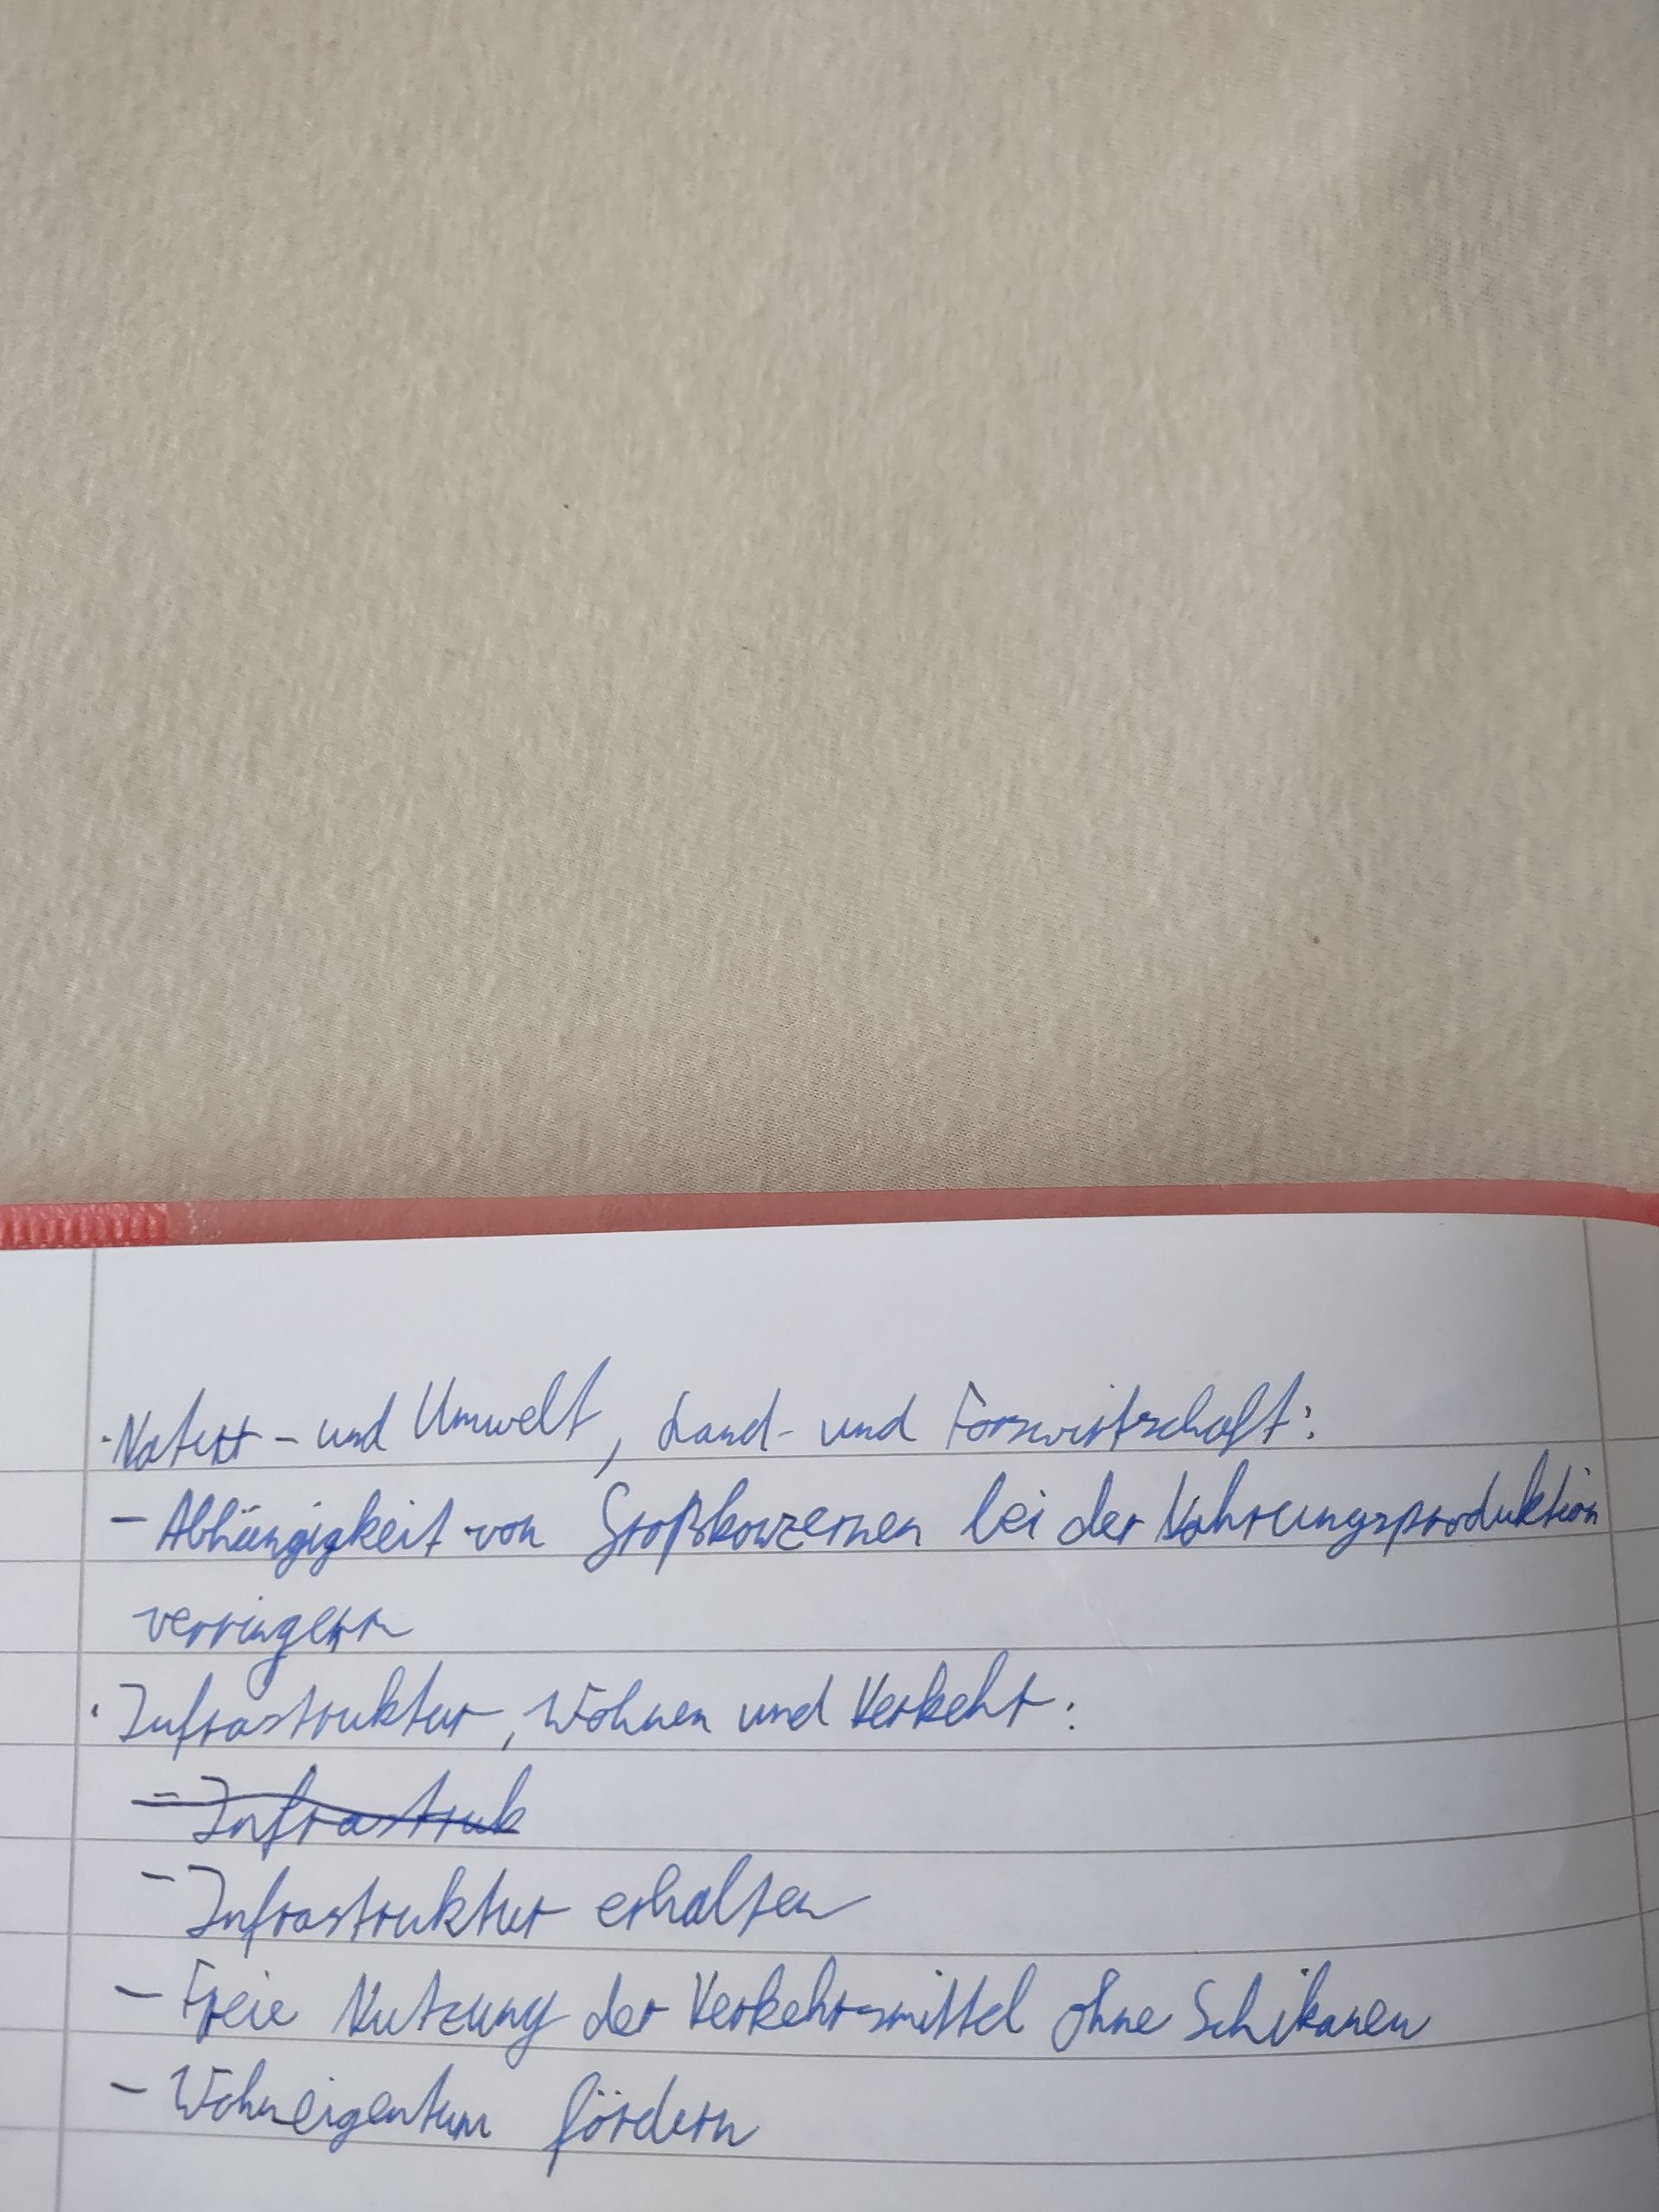 · Natur- und Umwelt, Land- und Forswirtschaft:
- Abhängigkeit von Großkonzernen bei der Nahrungsproduktion
verringern
· Infrastruktur, Wohnen und Verkehr:
- Infrastruk
- Infrastruktur erhalten
- Freie Nutzung der Verkehrsmittel ohne Schikanen
- Wohneigentum fördern